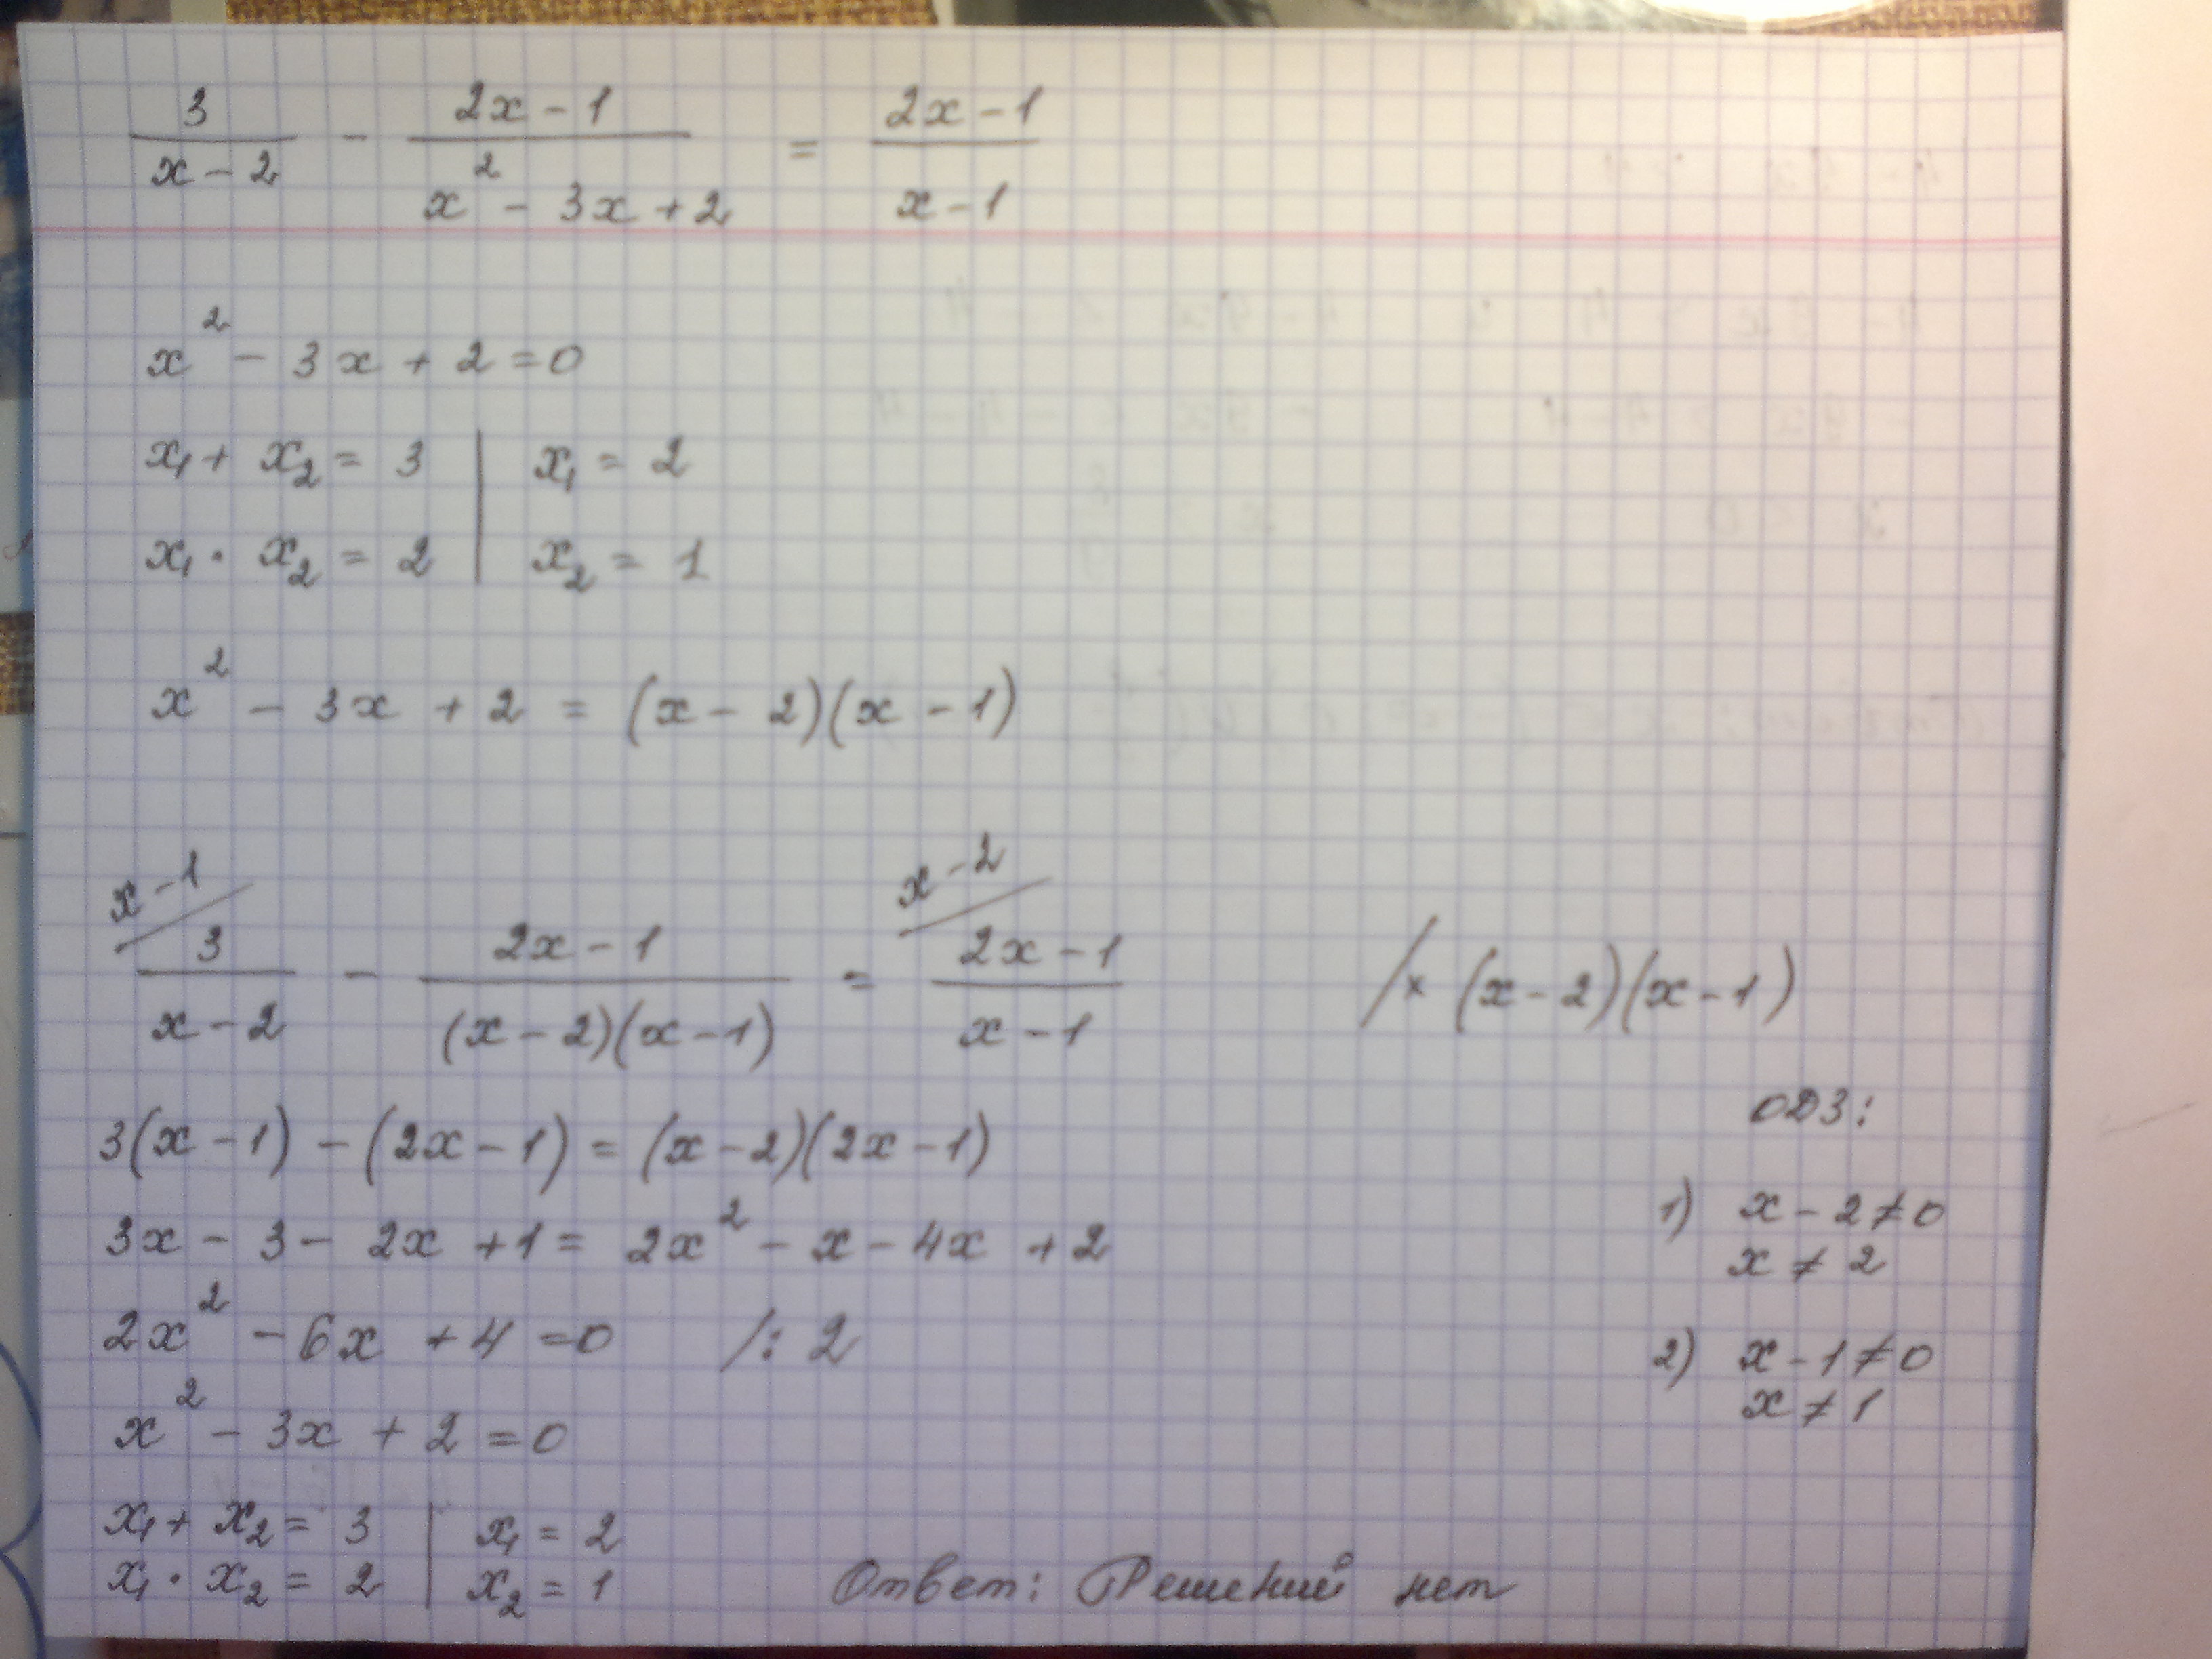 3/(x-2) - (2x-1)/(x²-3x+2) = (2x-1)/(x-1)
x² - 3x + 2 = 0
x₁ + x₂ = 3 | x₁ = 2
x₁ · x₂ = 2 | x₂ = 1
x² - 3x + 2 = (x - 2)(x - 1)
x-1/ 3/(x-2) - (2x-1)/((x-2)(x-1)) = x-2/ (2x-1)/(x-1) /× (x-2)(x-1)
ОДЗ:
3(x-1) - (2x-1) = (x-2)(2x-1)
1) x - 2 ≠ 0
3x - 3 - 2x + 1 = 2x² - x - 4x + 2
x ≠ 2
2x² - 6x + 4 = 0 /: 2
2) x - 1 ≠ 0
x ≠ 1
x² - 3x + 2 = 0
x₁ + x₂ = 3 | x₁ = 2
x₁ · x₂ = 2 | x₂ = 1
Ответ: Решений нет